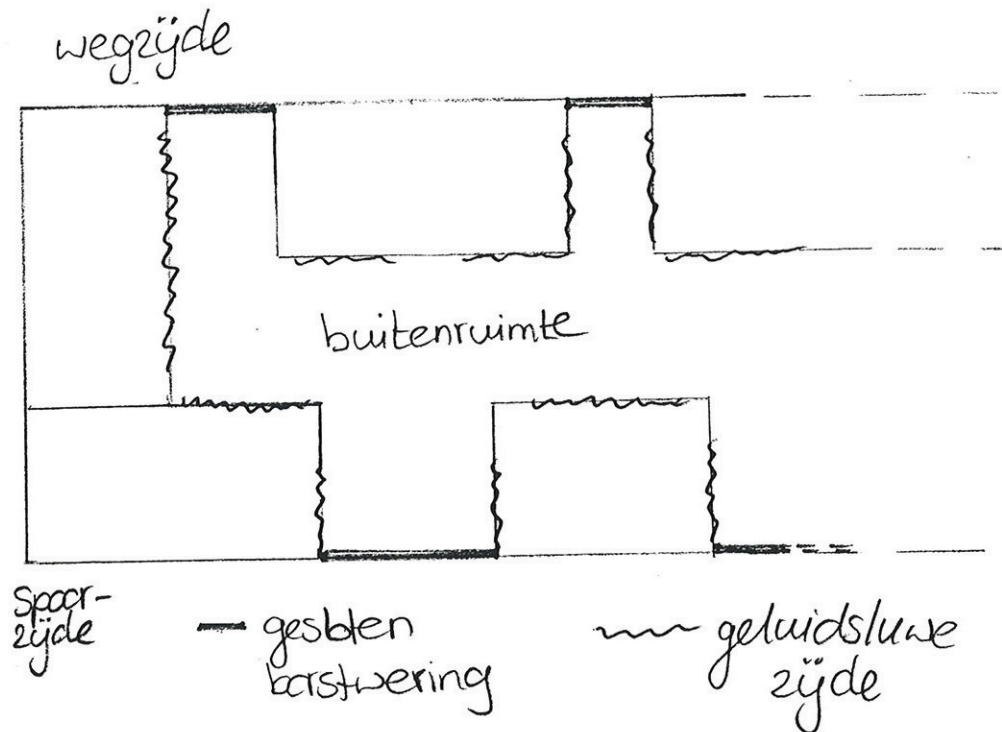 wegzijde
buitenruimte
spoor-
zijde
gesloten
borstwering
geluidsluwe
zijde